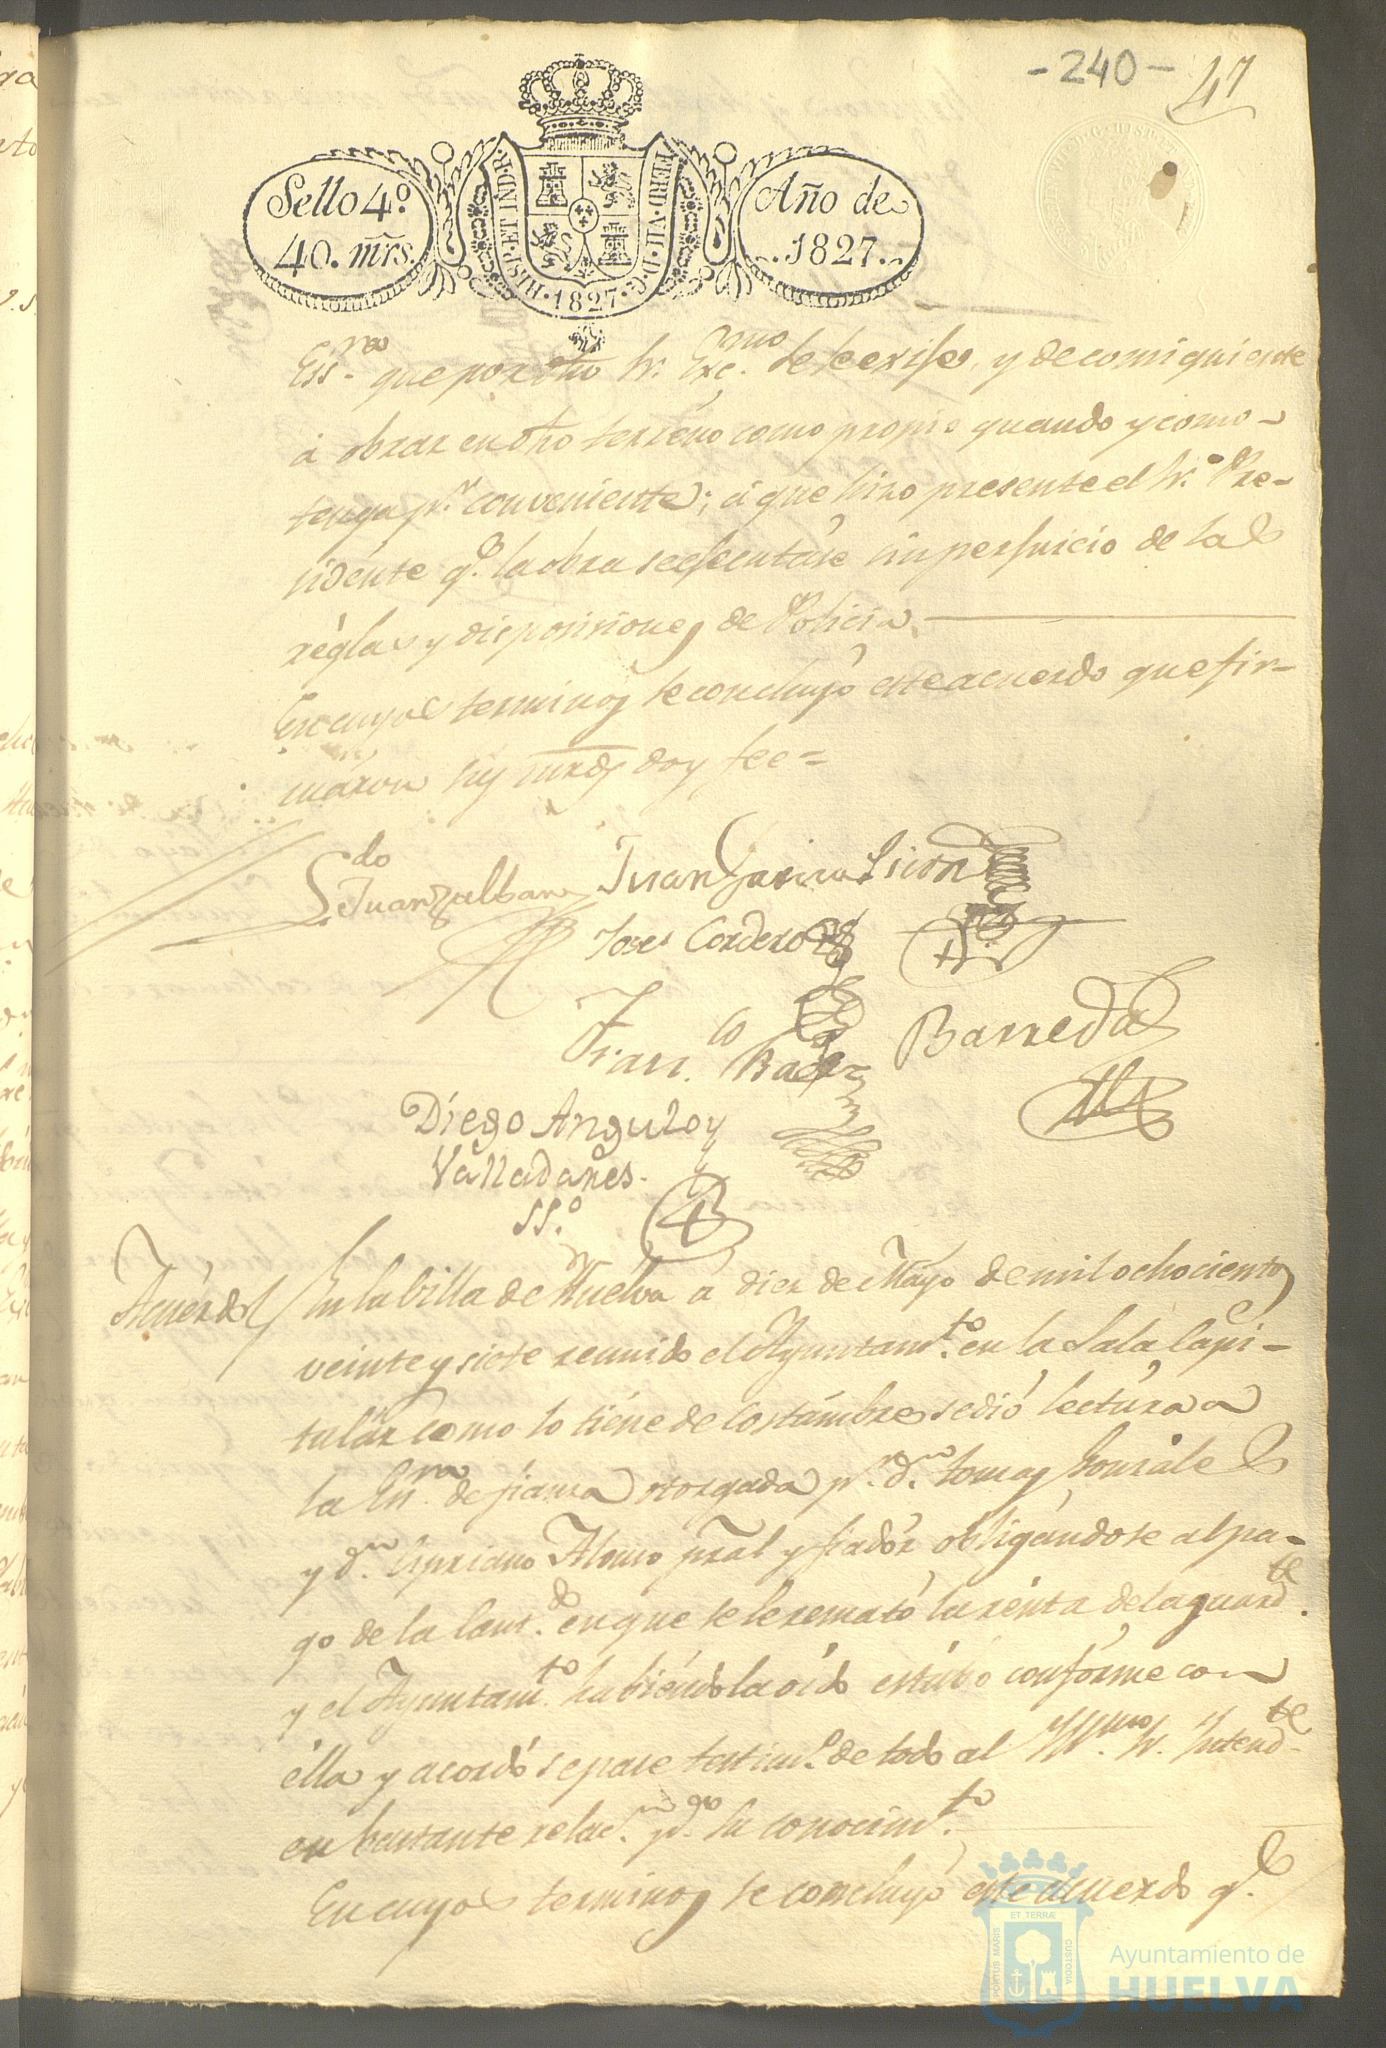 -240-
47
Sello 4º.
40. mrs.
HISP. ET IND. R.
FERD. VII. D. G.
1827
Año de
1827.
Essnª. que por dho Sr. Exc.mo y de consiguiente
á obrar en dho terréno como propio quando y como
tenga pr. conveniente; á que hizo presente el Sr. Pre-
sidénte qe. la obra se efecutáse sin perjuicio de las
réglas y disposiciones de Policia.
En cuyos terminos se concluyó este acuerdo que fir-
máron sus mrds doy fee=
Ldo
Juan Garcia
Jose Cordero
Franco. Baez
Barreda
Diego Angulo y
Valladares.
SSº.
Acuerdo
En la billa de Huelva á diez de Mayo de mil ochocientos
veinte y siete reunido el Ayuntamto. en la Sala Capi-
tulár como lo tiéne de costúmbre se dió lectúra a
la Essra. de fianza otorgada pr. Dn. Tomas Gonzáles
y Dn. Cipriano Alonso pral y fiadór obligándose al pa-
go de la cantd. en que se le remató la rénta del aguardte.
y el Ayuntamto. habiéndola oido estúbo confórme con
élla y acordó se pase testimo. de todo al Yllmo. Sr. Intendte.
en bastante relacn. pa. su conocimto.
En cuyos terminos se concluyó este acuerdo qe.
PORTUS MARIS
ET TERRÆ
CUSTODIA
Ayuntamiento de
HUELVA